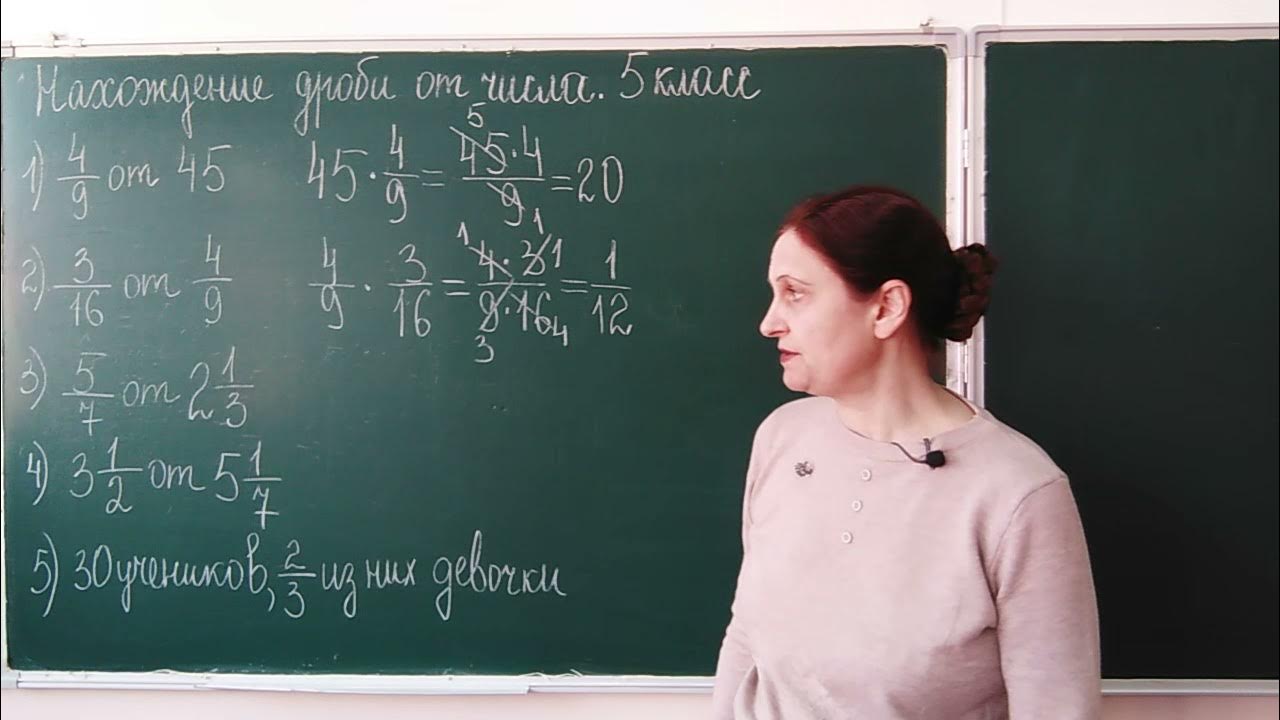 Нахождение дроби от числа. 5 класс
1) 4/9 от 45 45 · 4/9 = 45·4/9 = 20 5 1
2) 3/16 от 4/9 4/9 · 3/16 = 4·3/9·16 = 1/12 1 1 3 4
3) 5/7 от 2 1/3
4) 3 1/2 от 5 1/7
5) 30 учеников, 2/3 из них девочки